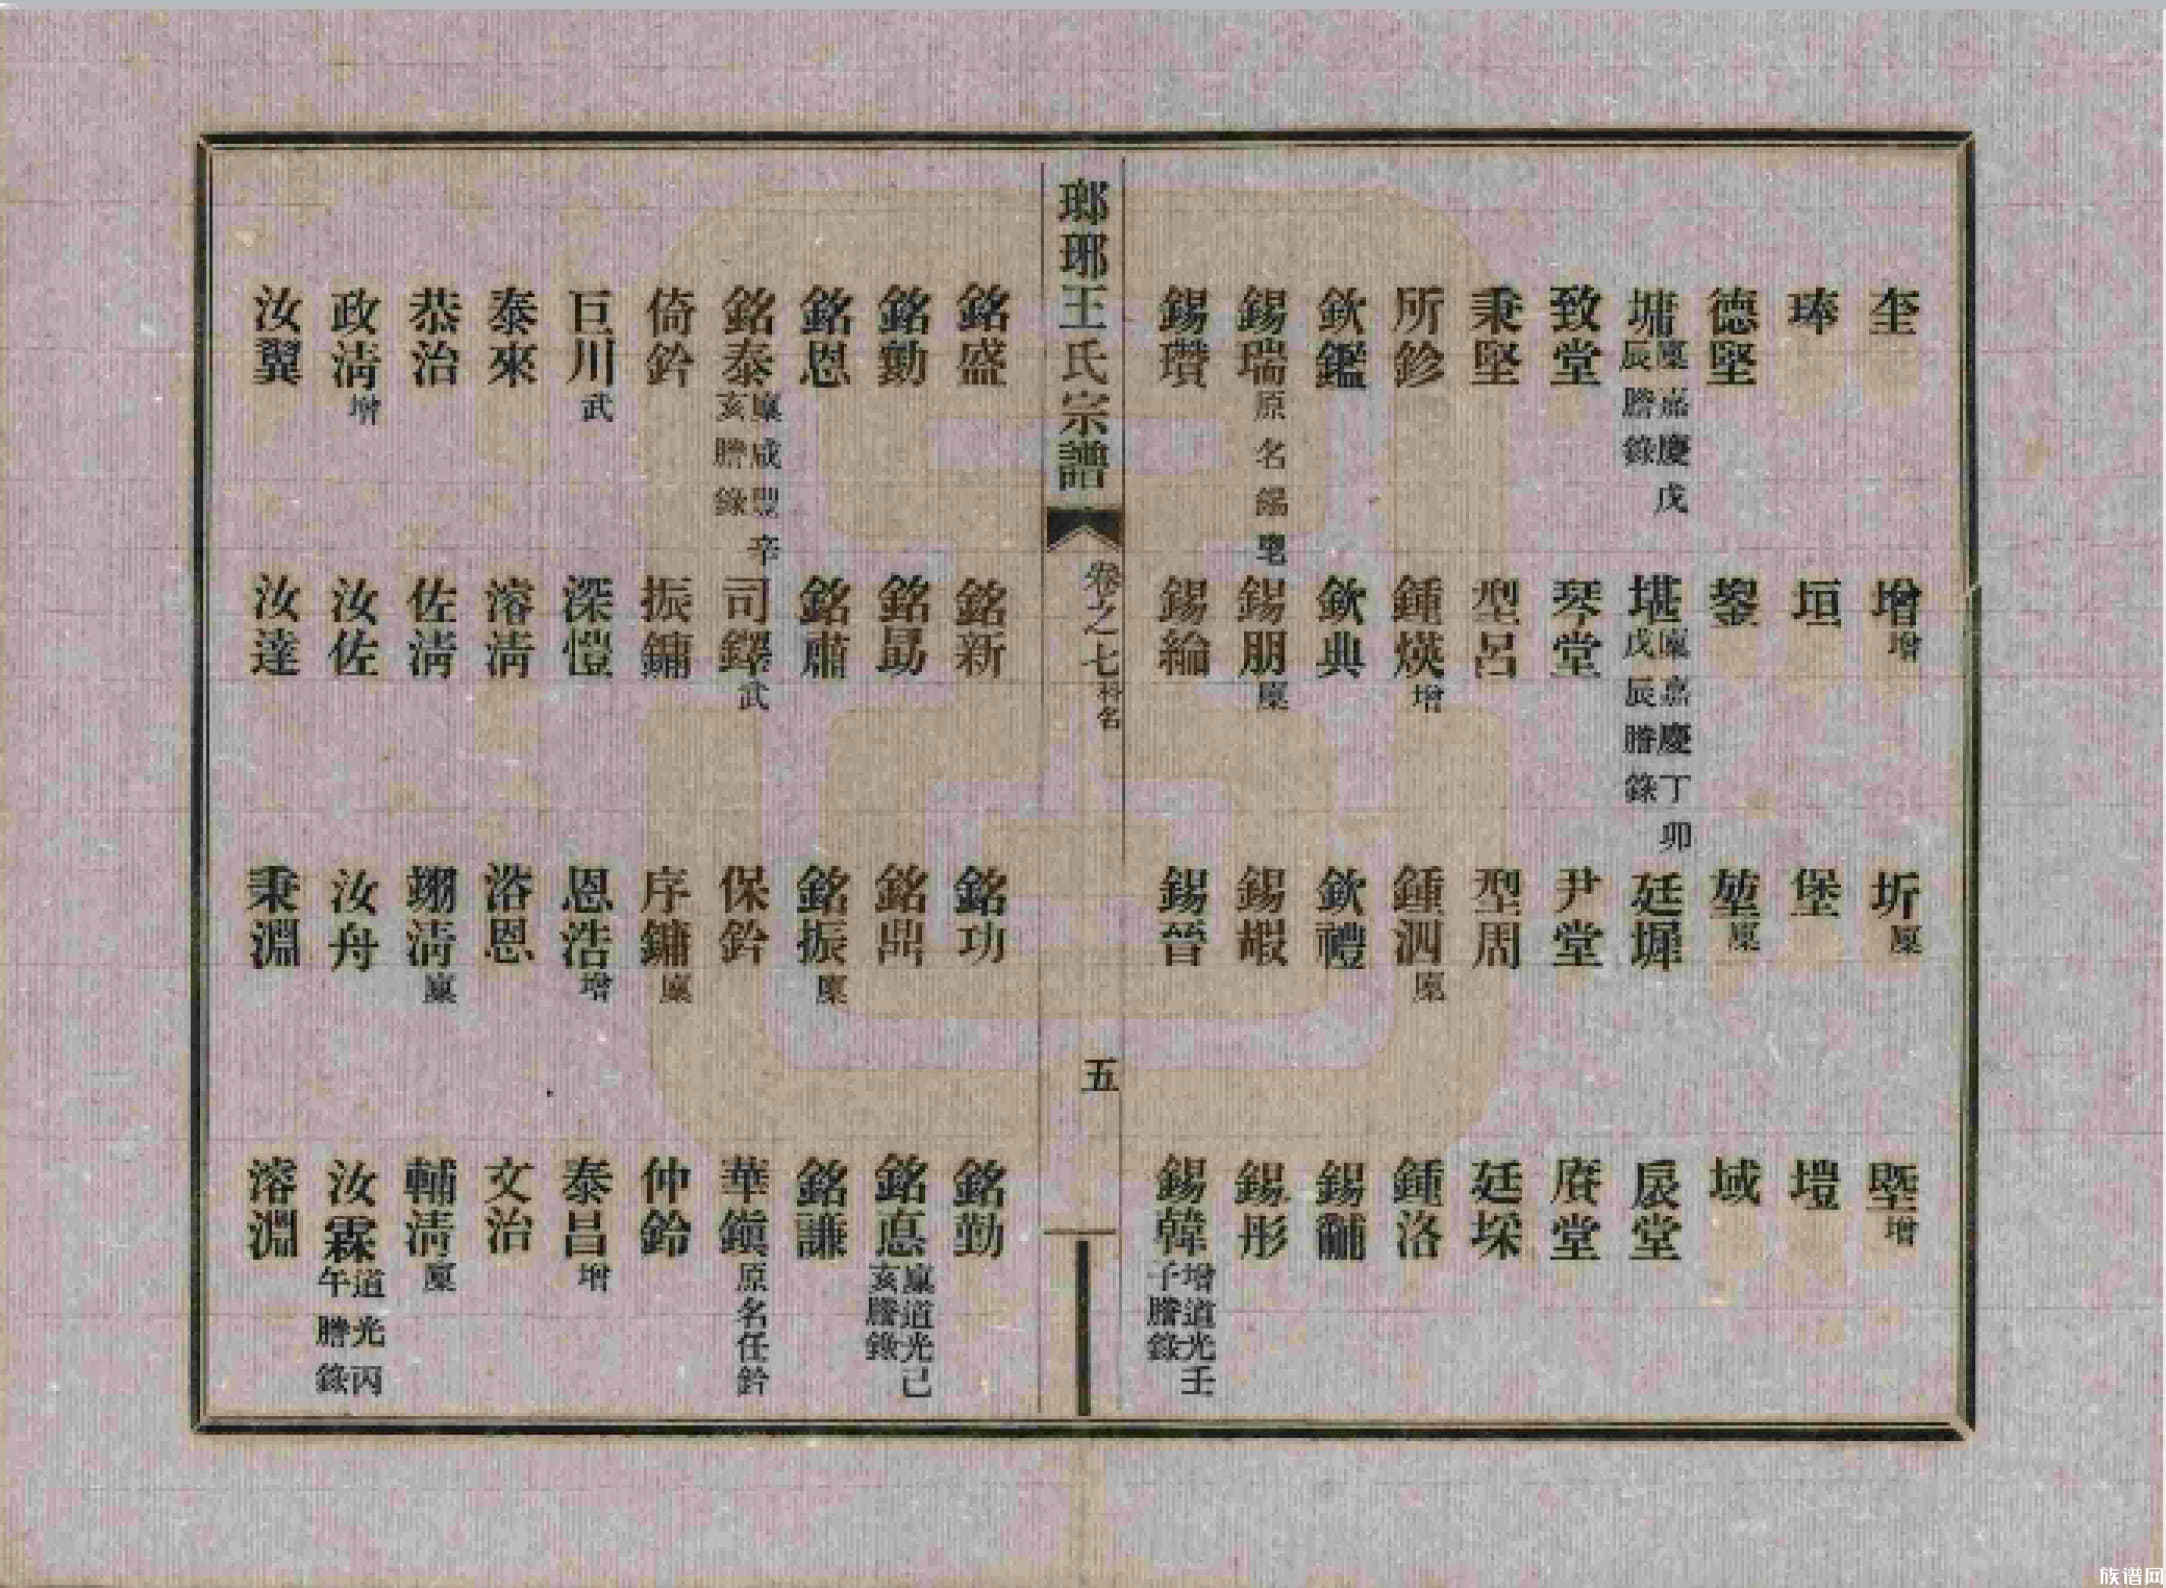 奎 增增 圻廩 塈增
琫 垣 堡 塏
德堅 鋆 堃廩 域
墉廩嘉慶戊辰謄錄 堪廩嘉慶丁卯戊辰謄錄 廷墀 扆堂
致堂 琴堂 尹堂 賡堂
秉堅 型呂 型周 廷埰
所鉁 鍾煐增 鍾泗廩 鍾洛
欽鑑 欽典 欽禮 錫黼
錫瑞原名錫鼍 錫朋廩 錫嘏 錫彤
錫瓚 錫綸 錫晉 錫韓增道光壬子謄錄
瑯琊王氏宗譜 卷之七科名 五
銘盛 銘新 銘功 銘勤
銘勳 銘勗 銘鼎 銘惪廩道光己亥謄錄
銘恩 銘肅 銘振廩 銘謙
銘泰廩咸豐辛亥謄錄 司鐸武 保鈐 華鎭原名任鈐
倚鈐 振鏞 序鏞廩 仲鈴
巨川武 深愷 恩浩增 泰昌增
泰來 溶淸 浴恩 文治
恭治 佐淸 翊淸廩 輔淸廩
政淸增 汝佐 汝舟 汝霖道光丙午謄錄
汝翼 汝達 秉淵 溶淵
族谱网